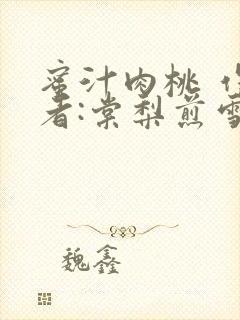 蜜汁肉桃 作
者:棠梨煎雪
魏鑫